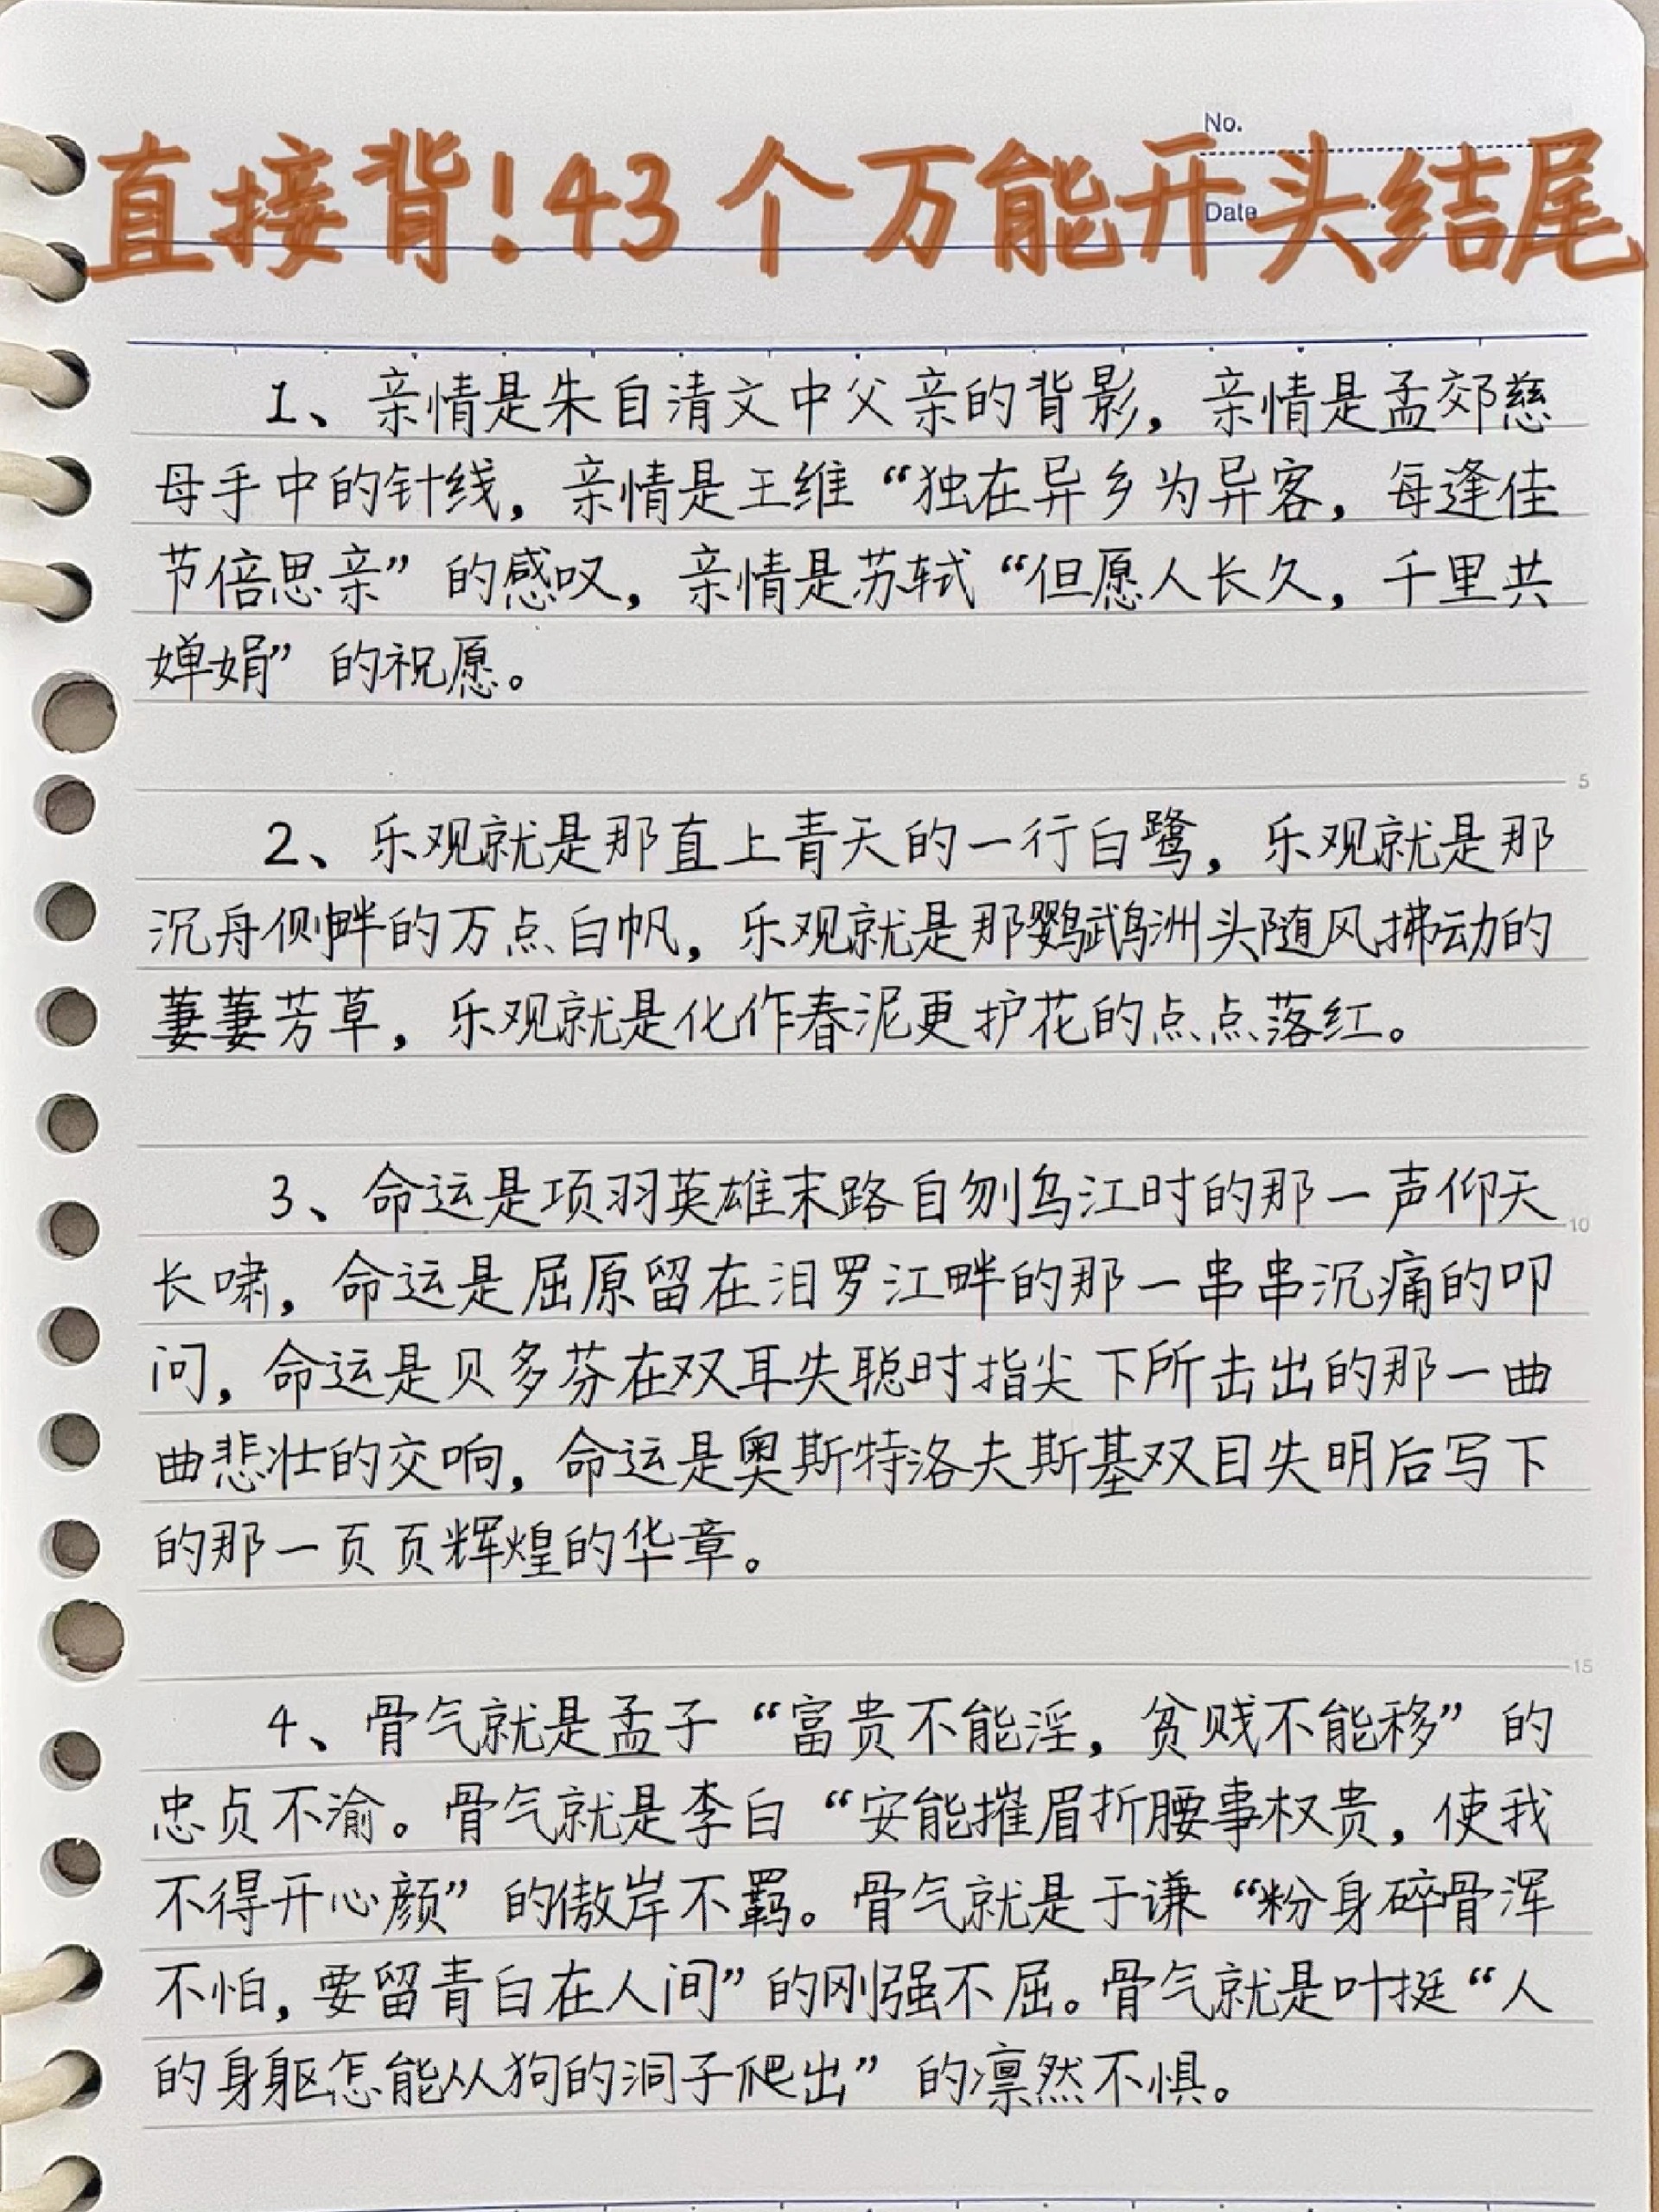 No.
直接背!43个万能开头结尾
Date
1、亲情是朱自清文中父亲的背影，亲情是孟郊慈
母手中的针线，亲情是王维“独在异乡为异客，每逢佳
节倍思亲”的感叹，亲情是苏轼“但愿人长久，千里共
婵娟”的祝愿。
5
2、乐观就是那直上青天的一行白鹭，乐观就是那
沉舟侧畔的万点白帆，乐观就是那鹦鹉洲头随风拂动的
萋萋芳草，乐观就是化作春泥更护花的点点落红。
3、命运是项羽英雄末路自刎乌江时的那一声仰天
10
长啸，命运是屈原留在汨罗江畔的那一串串沉痛的叩
问，命运是贝多芬在双耳失聪时指尖下所击出的那一曲
曲悲壮的交响，命运是奥斯特洛夫斯基双目失明后写下
的那一页页辉煌的华章。
15
4、骨气就是孟子“富贵不能淫，贫贱不能移”的
忠贞不渝。骨气就是李白“安能摧眉折腰事权贵，使我
不得开心颜”的傲岸不羁。骨气就是于谦“粉身碎骨浑
不怕，要留青白在人间”的刚强不屈。骨气就是叶挺“人
的身躯怎能从狗的洞子爬出”的凛然不惧。